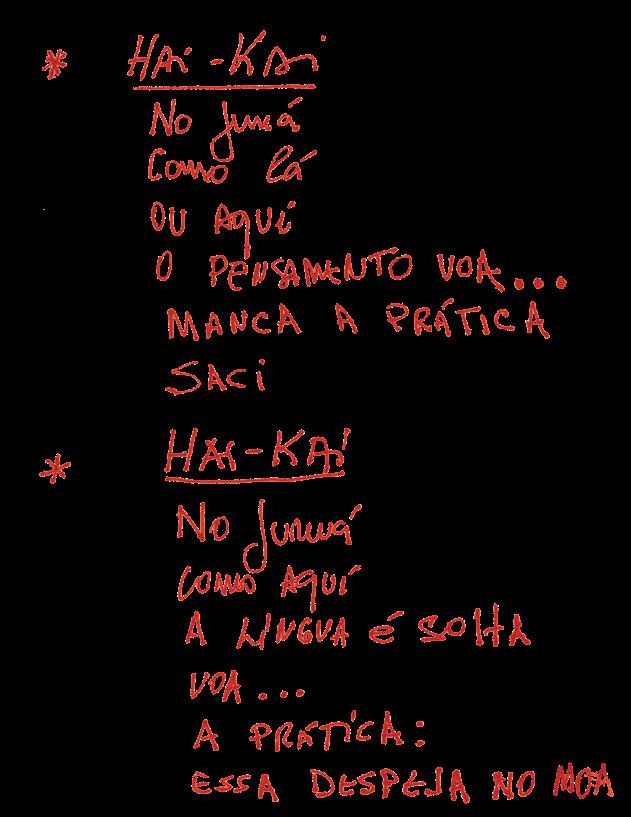 * HAI-KAI
No Juruá
Como lá
OU AQUI
O PENSAMENTO VOA...
MANCA A PRÁTICA
SACI
* HAI-KAI
No Juruá
COMO AQUI
A LÍNGUA É SOLTA
VOA...
A PRÁTICA:
ESSA DESPEJA NO MOA